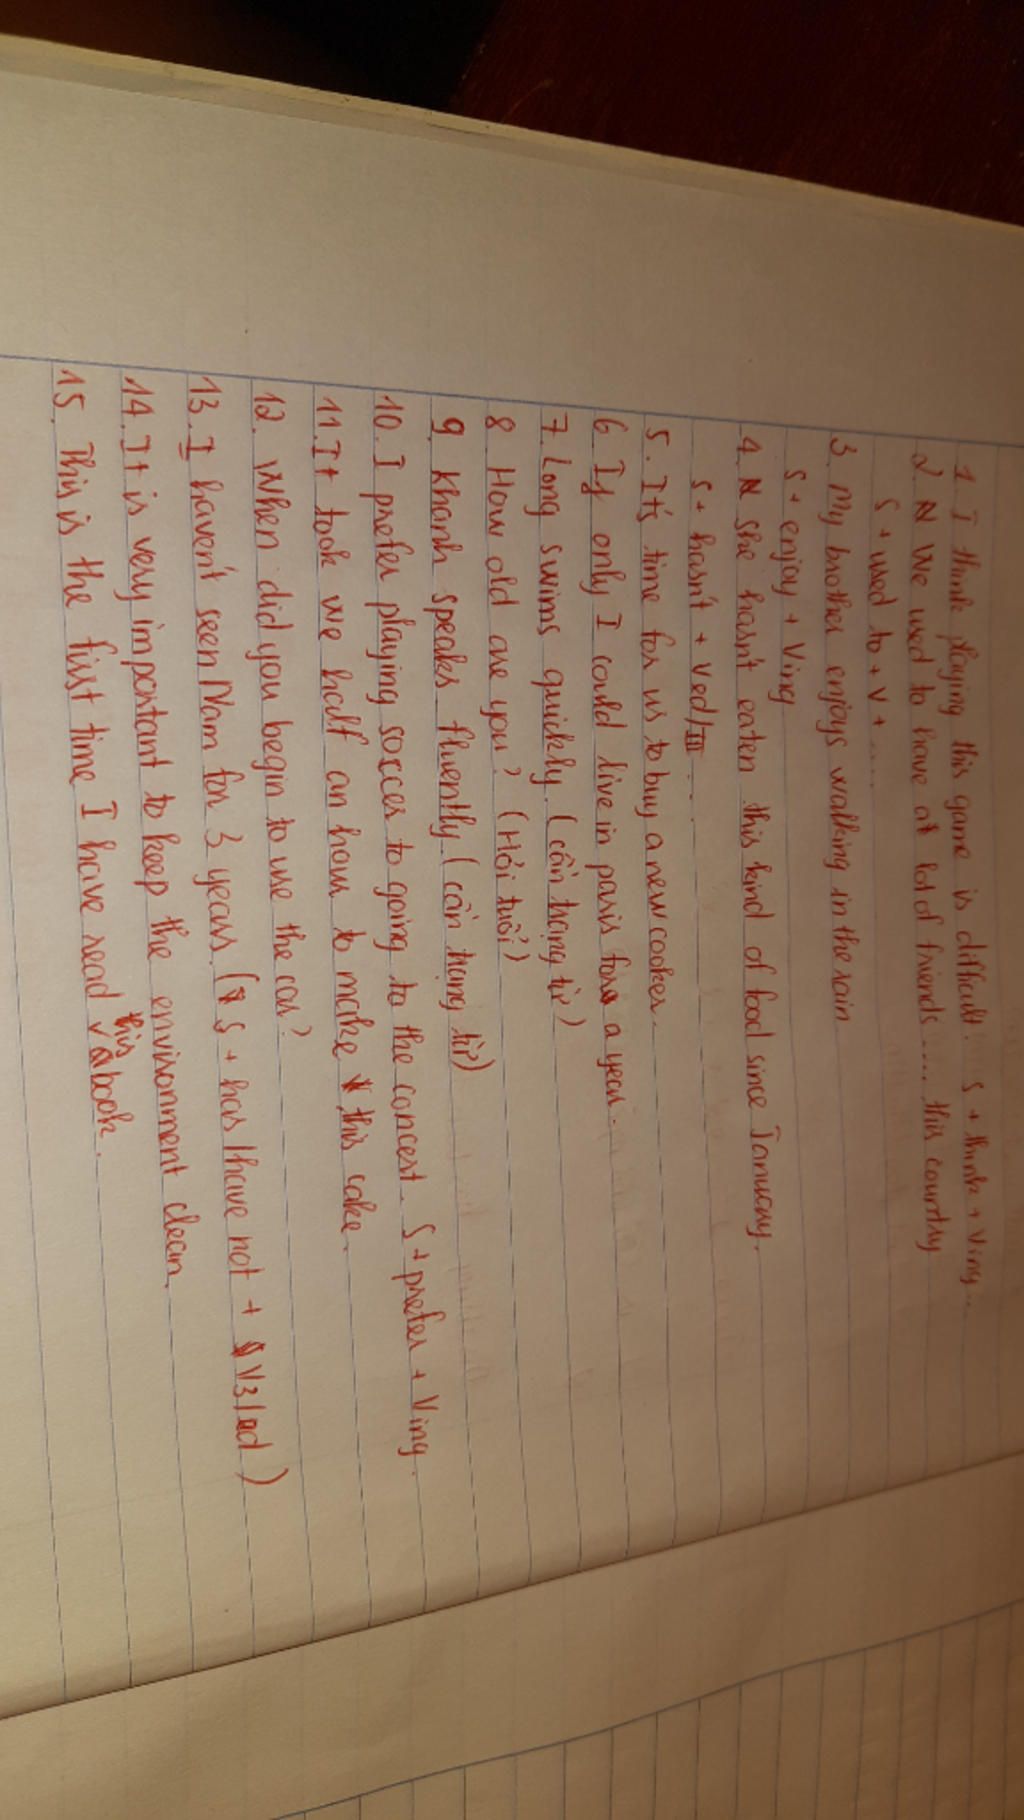 1. I think playing this game is difficult. S + think + Ving...
2. We used to have a lot of friends .... this country
S + used to + V + ....
3. My brother enjoys walking in the rain
S + enjoy + Ving
4. She hasn't eaten this kind of food since January.
S + hasn't + Ved/III...
5. It's time for us to buy a new cooker.
6. If only I could live in paris for a year.
7. Long swims quickly. (cần trạng từ)
8 How old are you? (Hỏi tuổi)
9 Khanh speaks fluently (cần trạng từ)
10. I prefer playing soccer to going to the concert. S + prefer + Ving.
11. It took we half an hour to make this cake.
12. When did you begin to use the car?
13. I haven't seen Nam for 3 years. (S + has/have not + V3/ed)
14. It is very important to keep the environment clean.
15. This is the first time I have read this book.